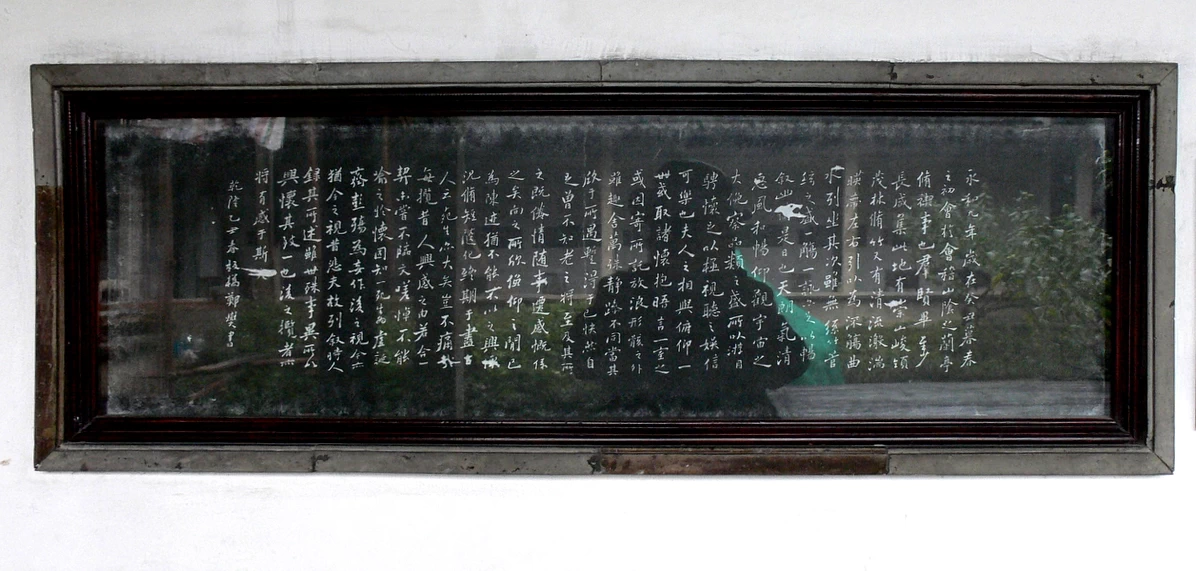 永和九年歲在癸丑暮春
之初會於會稽山陰之蘭亭
脩禊事也群賢畢至少
長咸集此地有崇山峻領
茂林脩竹又有清流激湍
暎帶左右引以為流觴曲
水列坐其次雖無絲竹管
絃之盛一觴一詠亦足以暢
叙幽是日也天朗氣清
惠風和暢仰觀宇宙之
大俯察品類之盛所以游目
騁懷足以極視聽之娛信
可樂也夫人之相與俯仰一
世或取諸懷抱晤言一室之
或因寄所託放浪形骸之外
雖趣舍萬殊靜躁不同當其
欣于所遇暫得於己快然自
足曾不知老之將至及其所
之既倦情隨事遷感慨係
之矣向之所欣俛仰之間已
為陳迹猶不能不以之興懷
况脩短隨化終期于盡古
人云死生亦大矣豈不痛哉
每攬昔人興感之由若合一
契未嘗不臨文嗟悼不能
喻之於懷固知一死生為虛誕
齊彭殤為妄作後之視今亦
猶今之視昔悲夫故列叙時人
錄其所述雖世殊事異所以
興懷其致一也後之攬者亦
將有感于斯文
乾隆乙丑春板橋鄭燮書